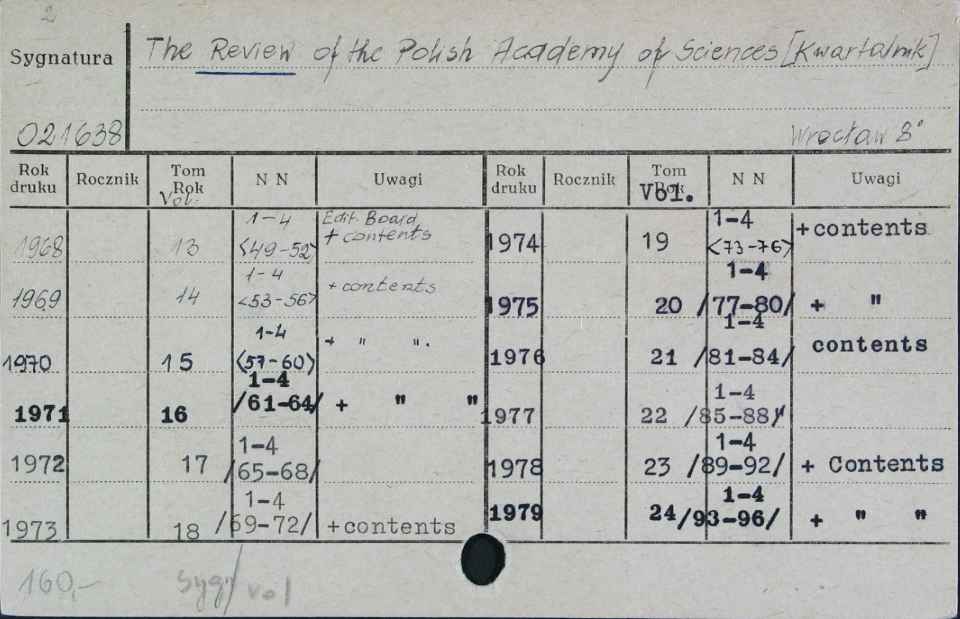 2
Sygnatura
The Review of the Polish Academy of Sciences [Kwartalnik]
021638
Wrocław 8°
Rok druku Rocznik Tom Rok Vol. N N Uwagi Rok druku Rocznik Tom Rok Vol. N N Uwagi
1968 13 1-4 <49-52> Edit. Board + contents
1969 14 1-4 <53-56> + contents
1970 15 1-4 <57-60> + " ".
1971 16 1-4 /61-64/ + " "
1972 17 1-4 /65-68/
1973 18 1-4 /69-72/ +contents
1974 19 1-4 <73-76> +contents
1975 20 1-4 /77-80/ + "
1976 21 1-4 /81-84/ contents
1977 22 1-4 /85-88/
1978 23 1-4 /89-92/ + Contents
1979 24 1-4 /93-96/ + " "
160,-
sygn/vol